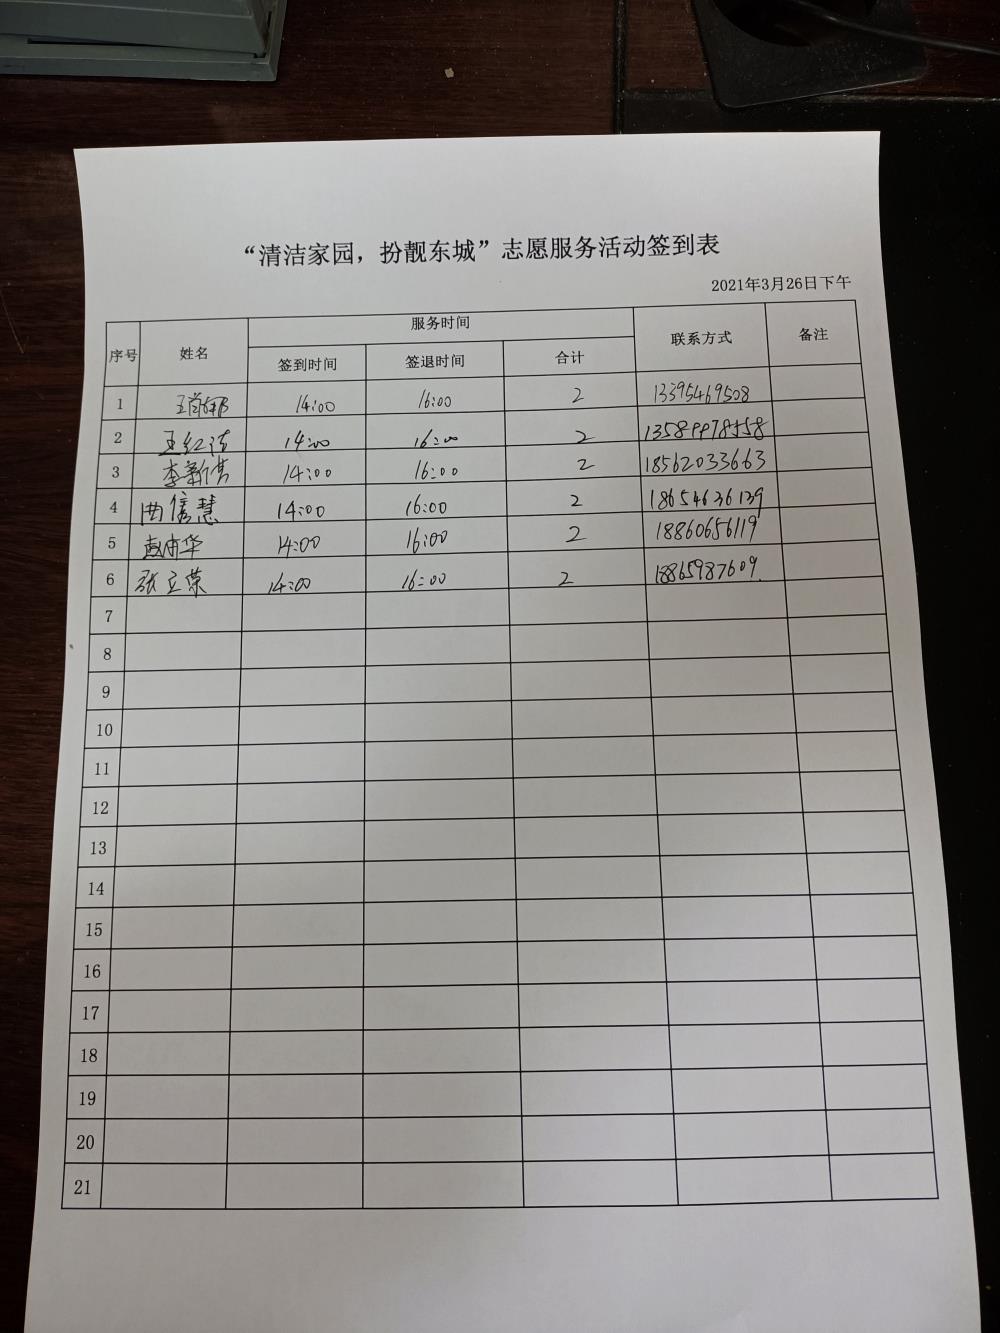 “清洁家园，扮靓东城”志愿服务活动签到表
2021年3月26日下午
序号 姓名 服务时间 联系方式 备注
签到时间 签退时间 合计
1 14:00 16:00 2 13395469508
2 王红洁 14:00 16:00 2 13589978558
3 李新苗 14:00 16:00 2 18562033663
4 曲信慧 14:00 16:00 2 18654636139
5 14:00 16:00 2 18860656119
6 张立荣 14:00 16:00 2 18865987609
7
8
9
10
11
12
13
14
15
16
17
18
19
20
21